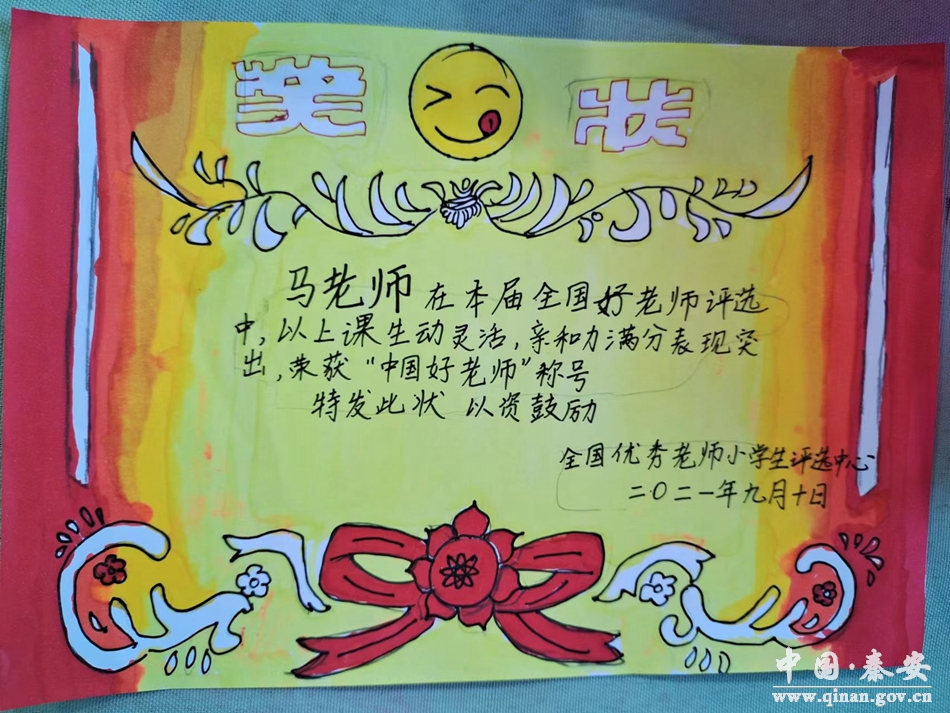 奖状
马老师在本届全国好老师评选
中，以上课生动灵活，亲和力满分表现突
出，荣获“中国好老师”称号
特发此状 以资鼓励
全国优秀老师小学生评选中心
二〇二一年九月十日
中国·秦安
www.qinan.gov.cn